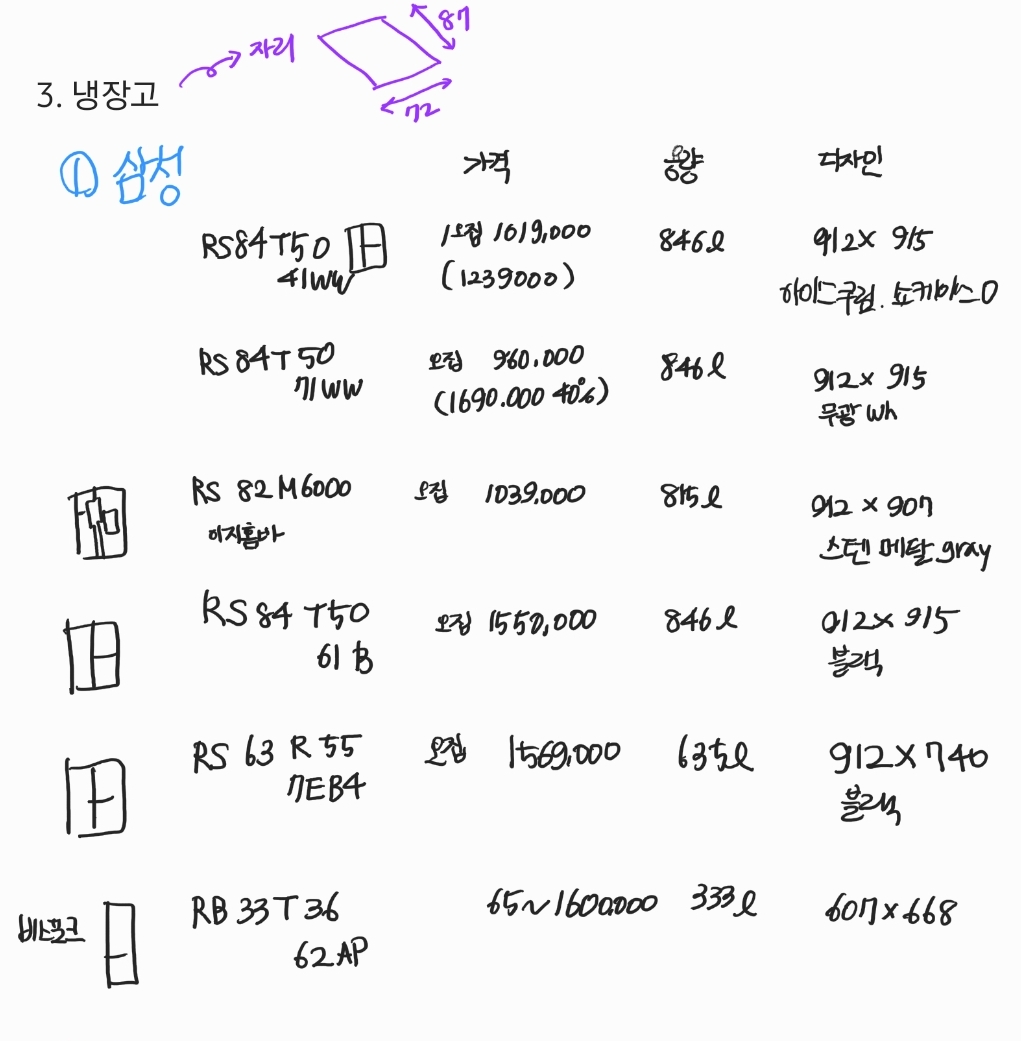 자리
87
72
3. 냉장고
① 삼성
가격 용량 디자인
RS84T50 오집 1019,000 846l 912 x 915
41WW (1239000) 아이스크림. 쇼케이스O
RS84T50 오집 960.000 846l 912 x 915
71WW (1690.000 40%) 무광 Wh
RS 82M6000 오집 1039.000 815l 912 x 907
이지홈바 스텐 메탈.gray
RS 84 T50 오집 1550,000 846l 912x 915
61B 블랙
RS 63 R 55 오집 1569,000 635l 912 X 740
7EB4 블랙
비스포크 RB 33T 36 65~1600000 333l 607 x 668
62AP